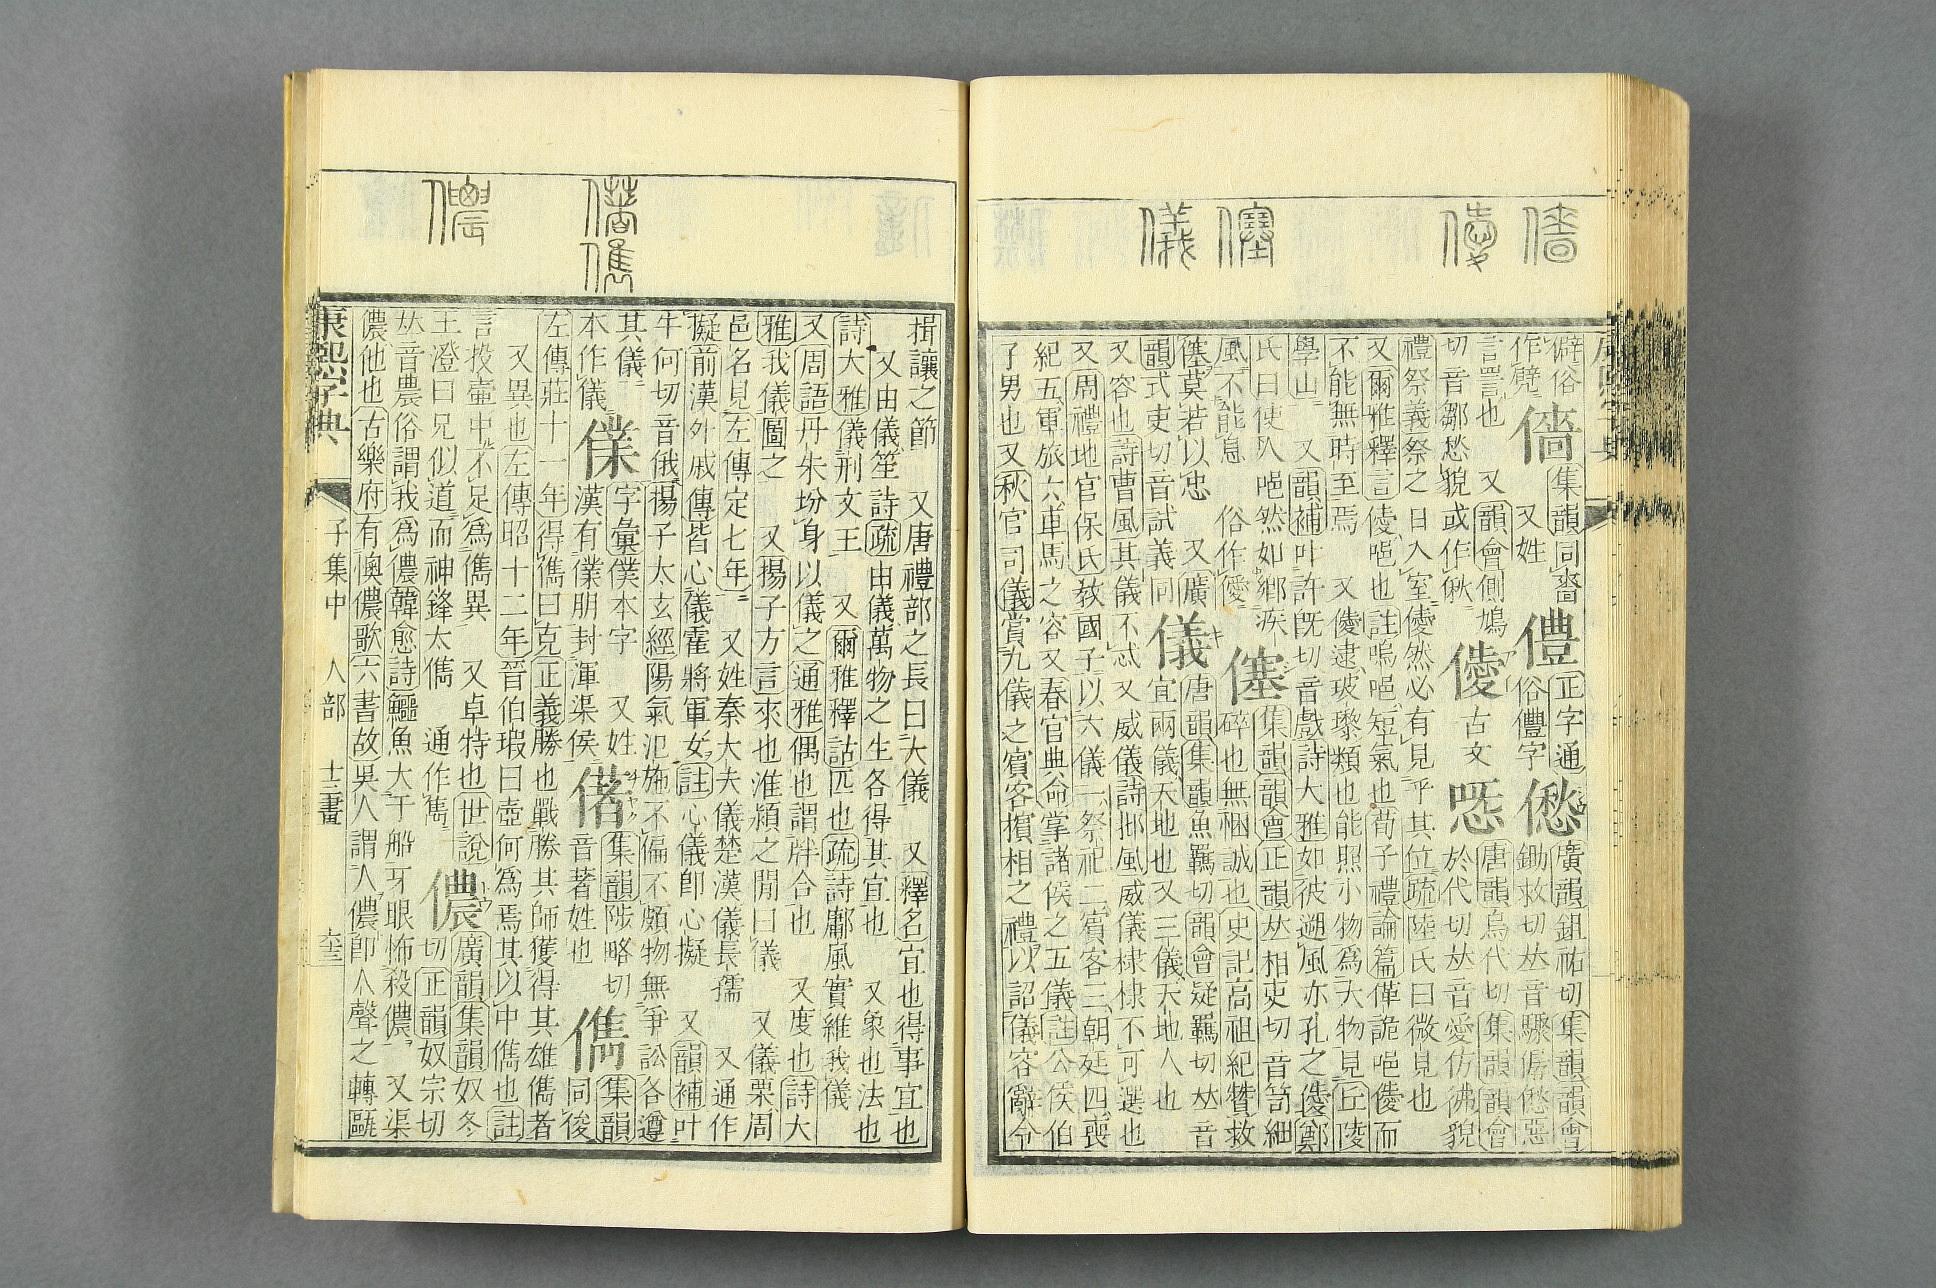 僻俗
作僻
儙
集韻同嗇
又姓
僼
正字通
俗僼字
僽
廣韻鉏祐切集韻韻會
鋤救切𠀤音驟僝僽惡
言詈也　又韻會側鳩
切音鄒愁貌或作愀
僾
古文
㤅
唐韻烏代切集韻韻會
於代切𠀤音愛仿彿貌
禮祭義祭之日入室僾然必有見乎其位疏陸氏曰微見也
又爾雅釋言僾唈也註嗚唈短氣也荀子禮論篇僅詭唈僾而
不能無時至焉　又僾逮玻瓈類也能照小物爲大物見丘陵
學山　又韻補叶許旣切音戲詩大雅如彼遡風亦孔之僾鄭
氏曰使人唈然如鄉疾
風不能息　俗作僾
僿
集韻韻會正韻𠀤相吏切音笥細
碎也無悃誠也史記高祖紀贊救
僿莫若以忠　又廣
韻式吏切音試義同
儀
唐韻集韻魚羈切韻會疑羈切𠀤音
宜兩儀天地也又三儀天地人也
又容也詩曹風其儀不忒又威儀詩邶風威儀棣棣不可選也
又周禮地官保氏敎國子以六儀一祭祀二賓客三朝廷四喪
紀五軍旅六車馬之容又春官典命掌諸侯之五儀註公侯伯
子男也又秋官司儀賞九儀之賓客擯相之禮以詔儀容辭令
揖讓之節　又唐禮部之長曰大儀　又釋名宜也得事宜也
又由儀笙詩疏由儀萬物之生各得其宜也　又象也法也
詩大雅儀刑文王　又爾雅釋詁匹也疏詩鄘風實維我儀
又周語丹朱坋身以儀之通雅偶也謂牉合也　又度也詩大
雅我儀圖之　又揚子方言來也淮潁之閒曰儀　又儀栗周
邑名見左傳定七年　又姓秦大夫儀楚漢儀長孺　又通作
擬前漢外戚傳皆心儀霍將軍女註心儀卽心擬　又韻補叶
牛何切音俄揚子太玄經陽氣汜施不偏不頗物無爭訟各遵
其儀
本作儀
僕
字彙僕本字　又姓
漢有僕朋封渾渠侯
偖
集韻陟略切
音著姓也
儁
集韻
同俊
左傳莊十一年得儁曰克正義勝也戰勝其師獲得其雄儁者
又異也左傳昭十二年晉伯瑕曰壺何爲焉其以中儁也註
言投壺中不足爲儁異　又卓特也世說
王澄曰兄似道而神鋒太儁　通作雋
儂
廣韻集韻奴冬
切正韻奴宗切
𠀤音農俗謂我爲儂韓愈詩鱷魚大于船牙眼怖殺儂　又渠
儂他也古樂府有懊儂歌六書故吳人謂人儂卽人聲之轉甌
康熙字典
子集中
人部
十三畫